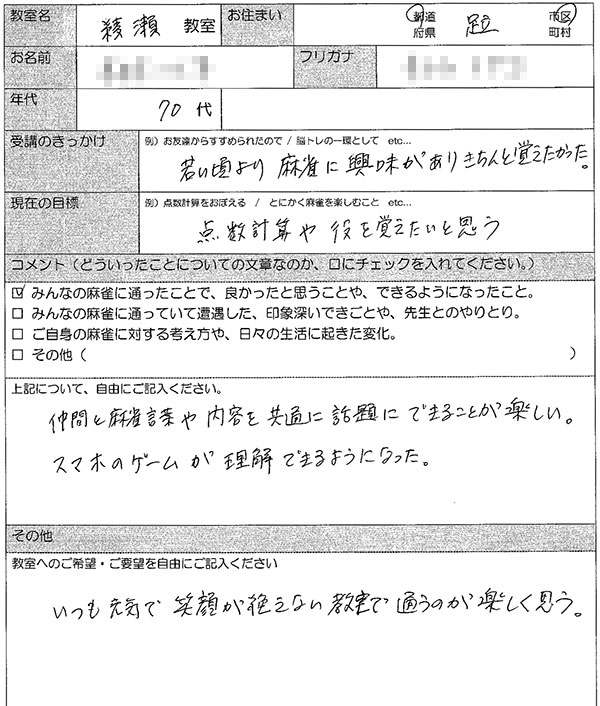 教室名 綾瀬 教室 お住まい 都道府県 足立 市区町村
お名前 フリガナ
年代 70代
受講のきっかけ 例）お友達からすすめられたので / 脳トレの一環として etc...
若い頃より麻雀に興味がありきちんと覚えたかった。
現在の目標 例）点数計算をおぼえる / とにかく麻雀を楽しむこと etc...
点数計算や役を覚えたいと思う
コメント（どういったことについての文章なのか、口にチェックを入れてください。）
☑ みんなの麻雀に通ったことで、良かったと思うことや、できるようになったこと。
□ みんなの麻雀に通っていて遭遇した、印象深いできごとや、先生とのやりとり。
□ ご自身の麻雀に対する考え方や、日々の生活に起きた変化。
□ その他（ ）
上記について、自由にご記入ください。
仲間と麻雀言葉や内容を共通に話題にできることが楽しい。
スマホのゲームが理解できるようになった。
その他
教室へのご希望・ご要望を自由にご記入ください
いつも元気で笑顔が絶えない教室で通うのが楽しく思う。